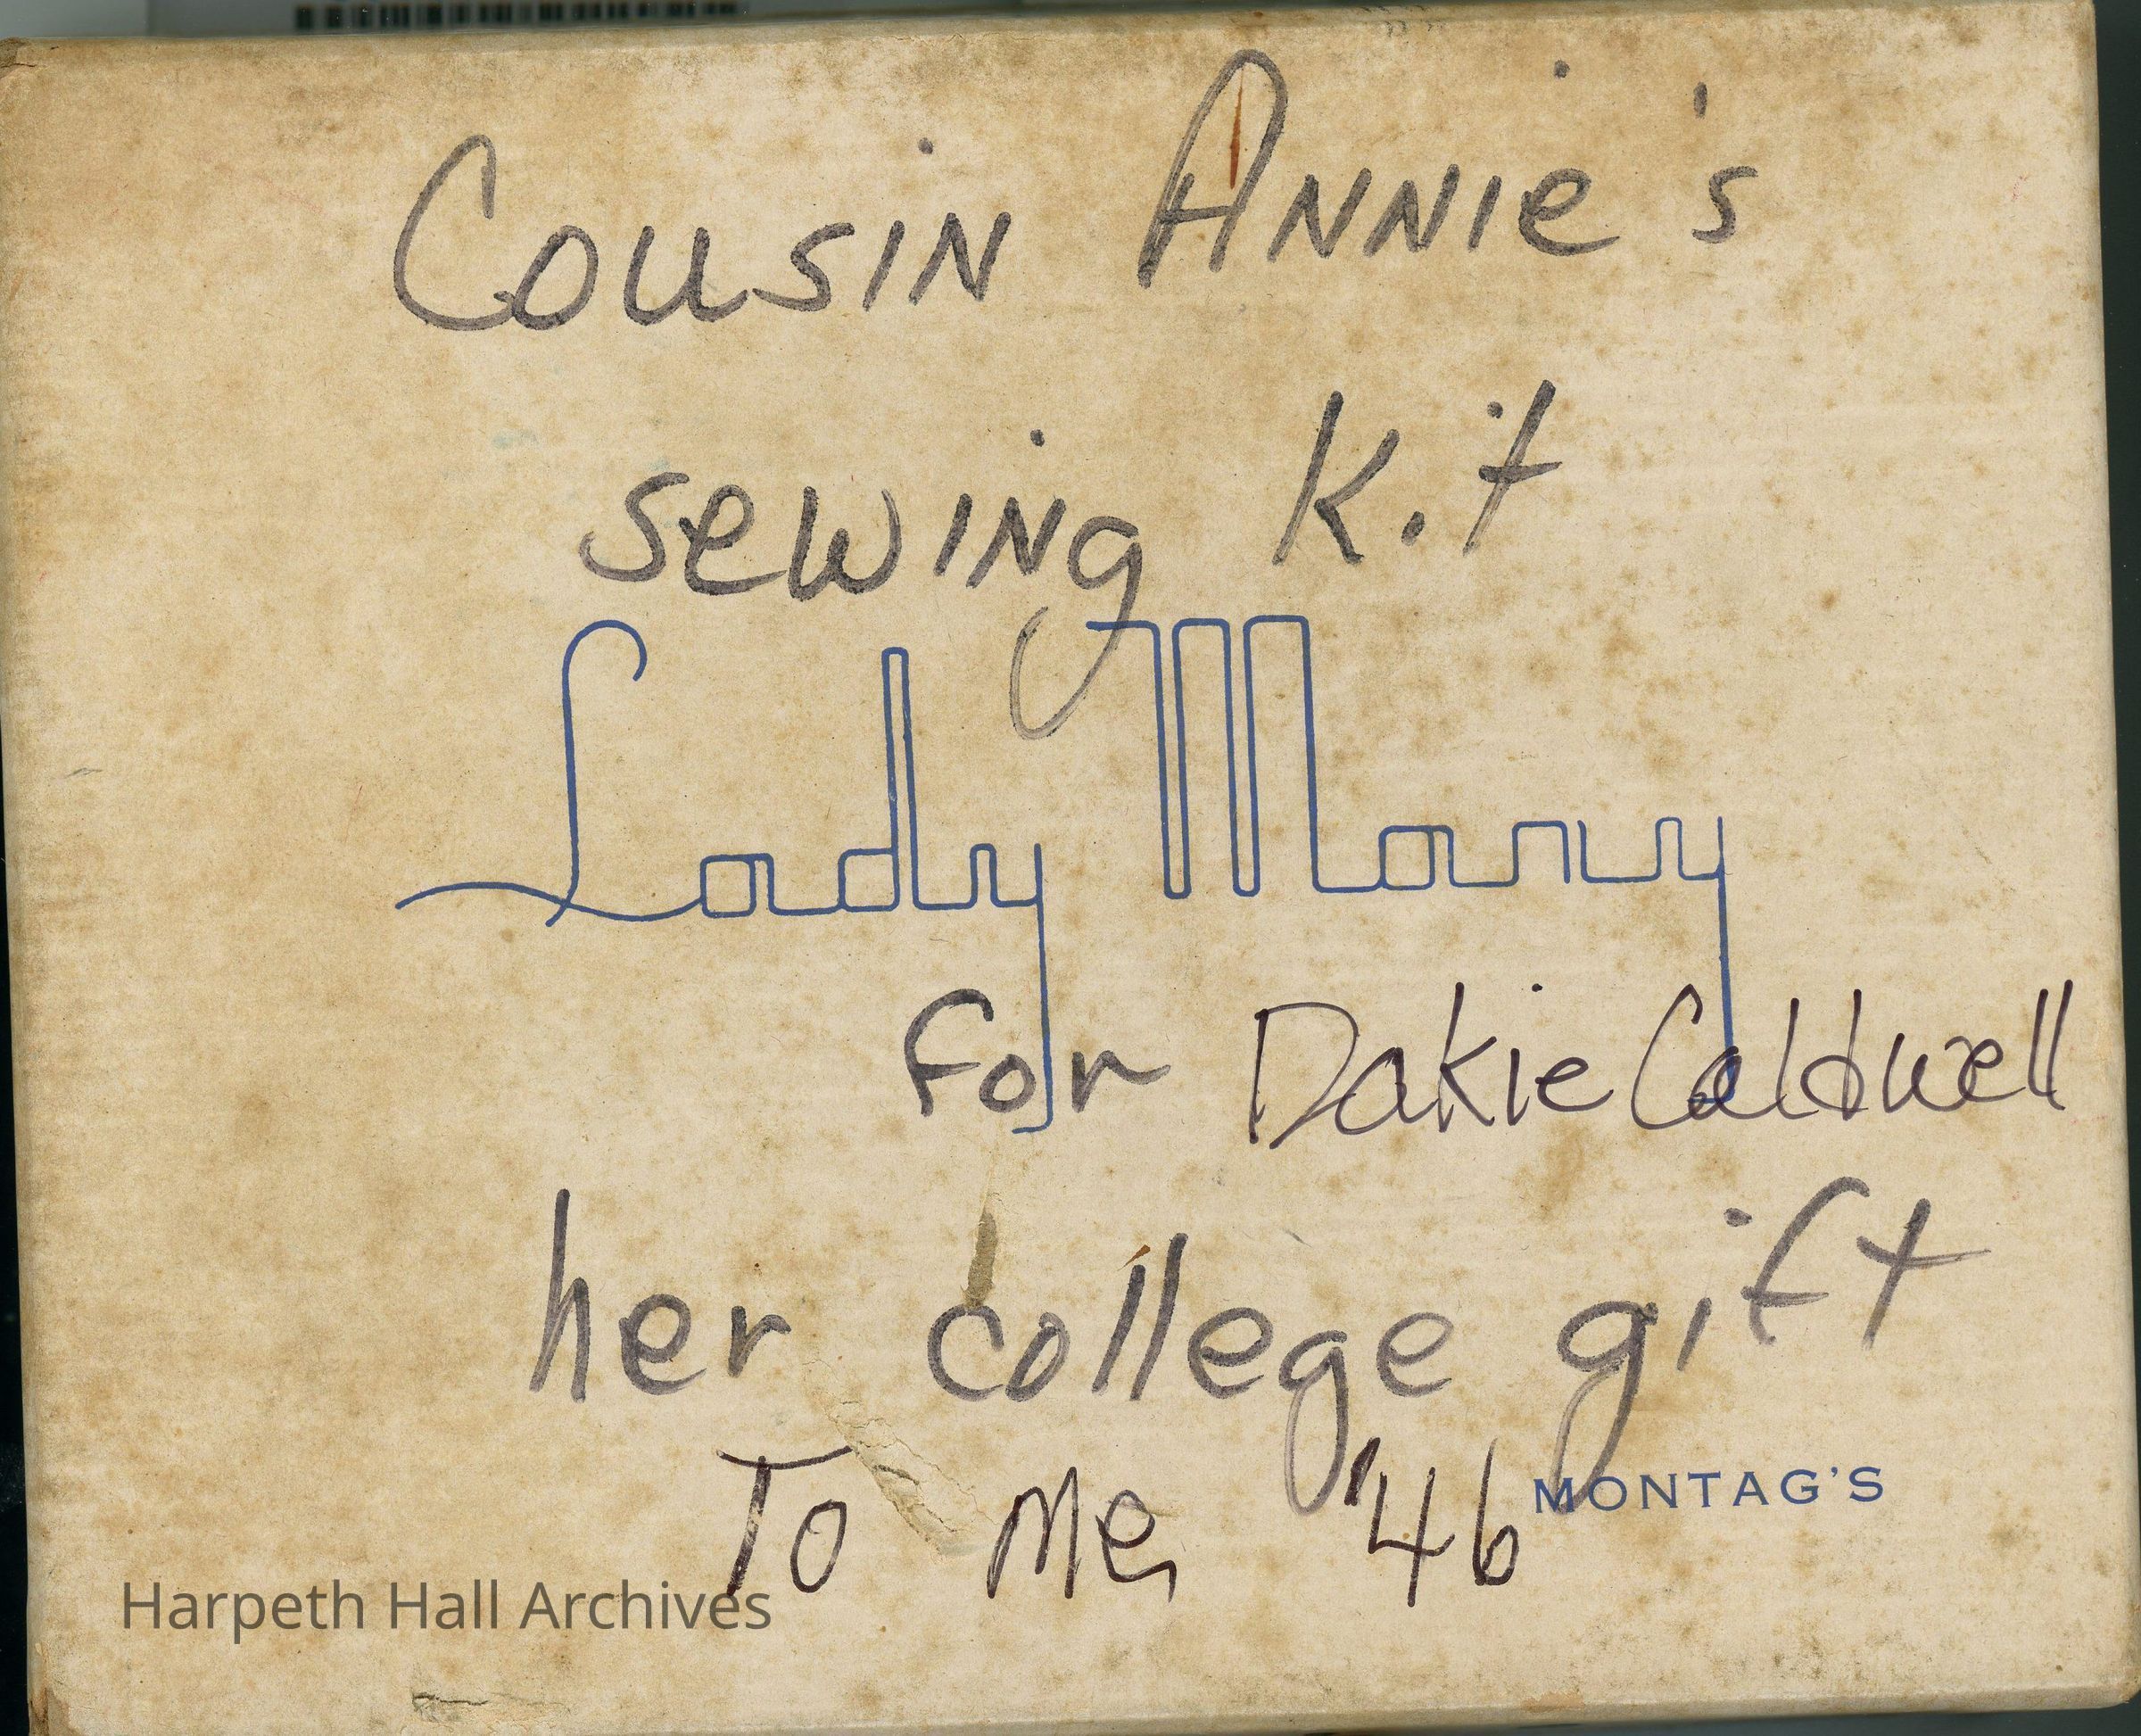 Cousin Annie's
sewing Kit
Lady Mary
for Dakie Caldwell
her college gift
To Me '46
MONTAG'S
Harpeth Hall Archives